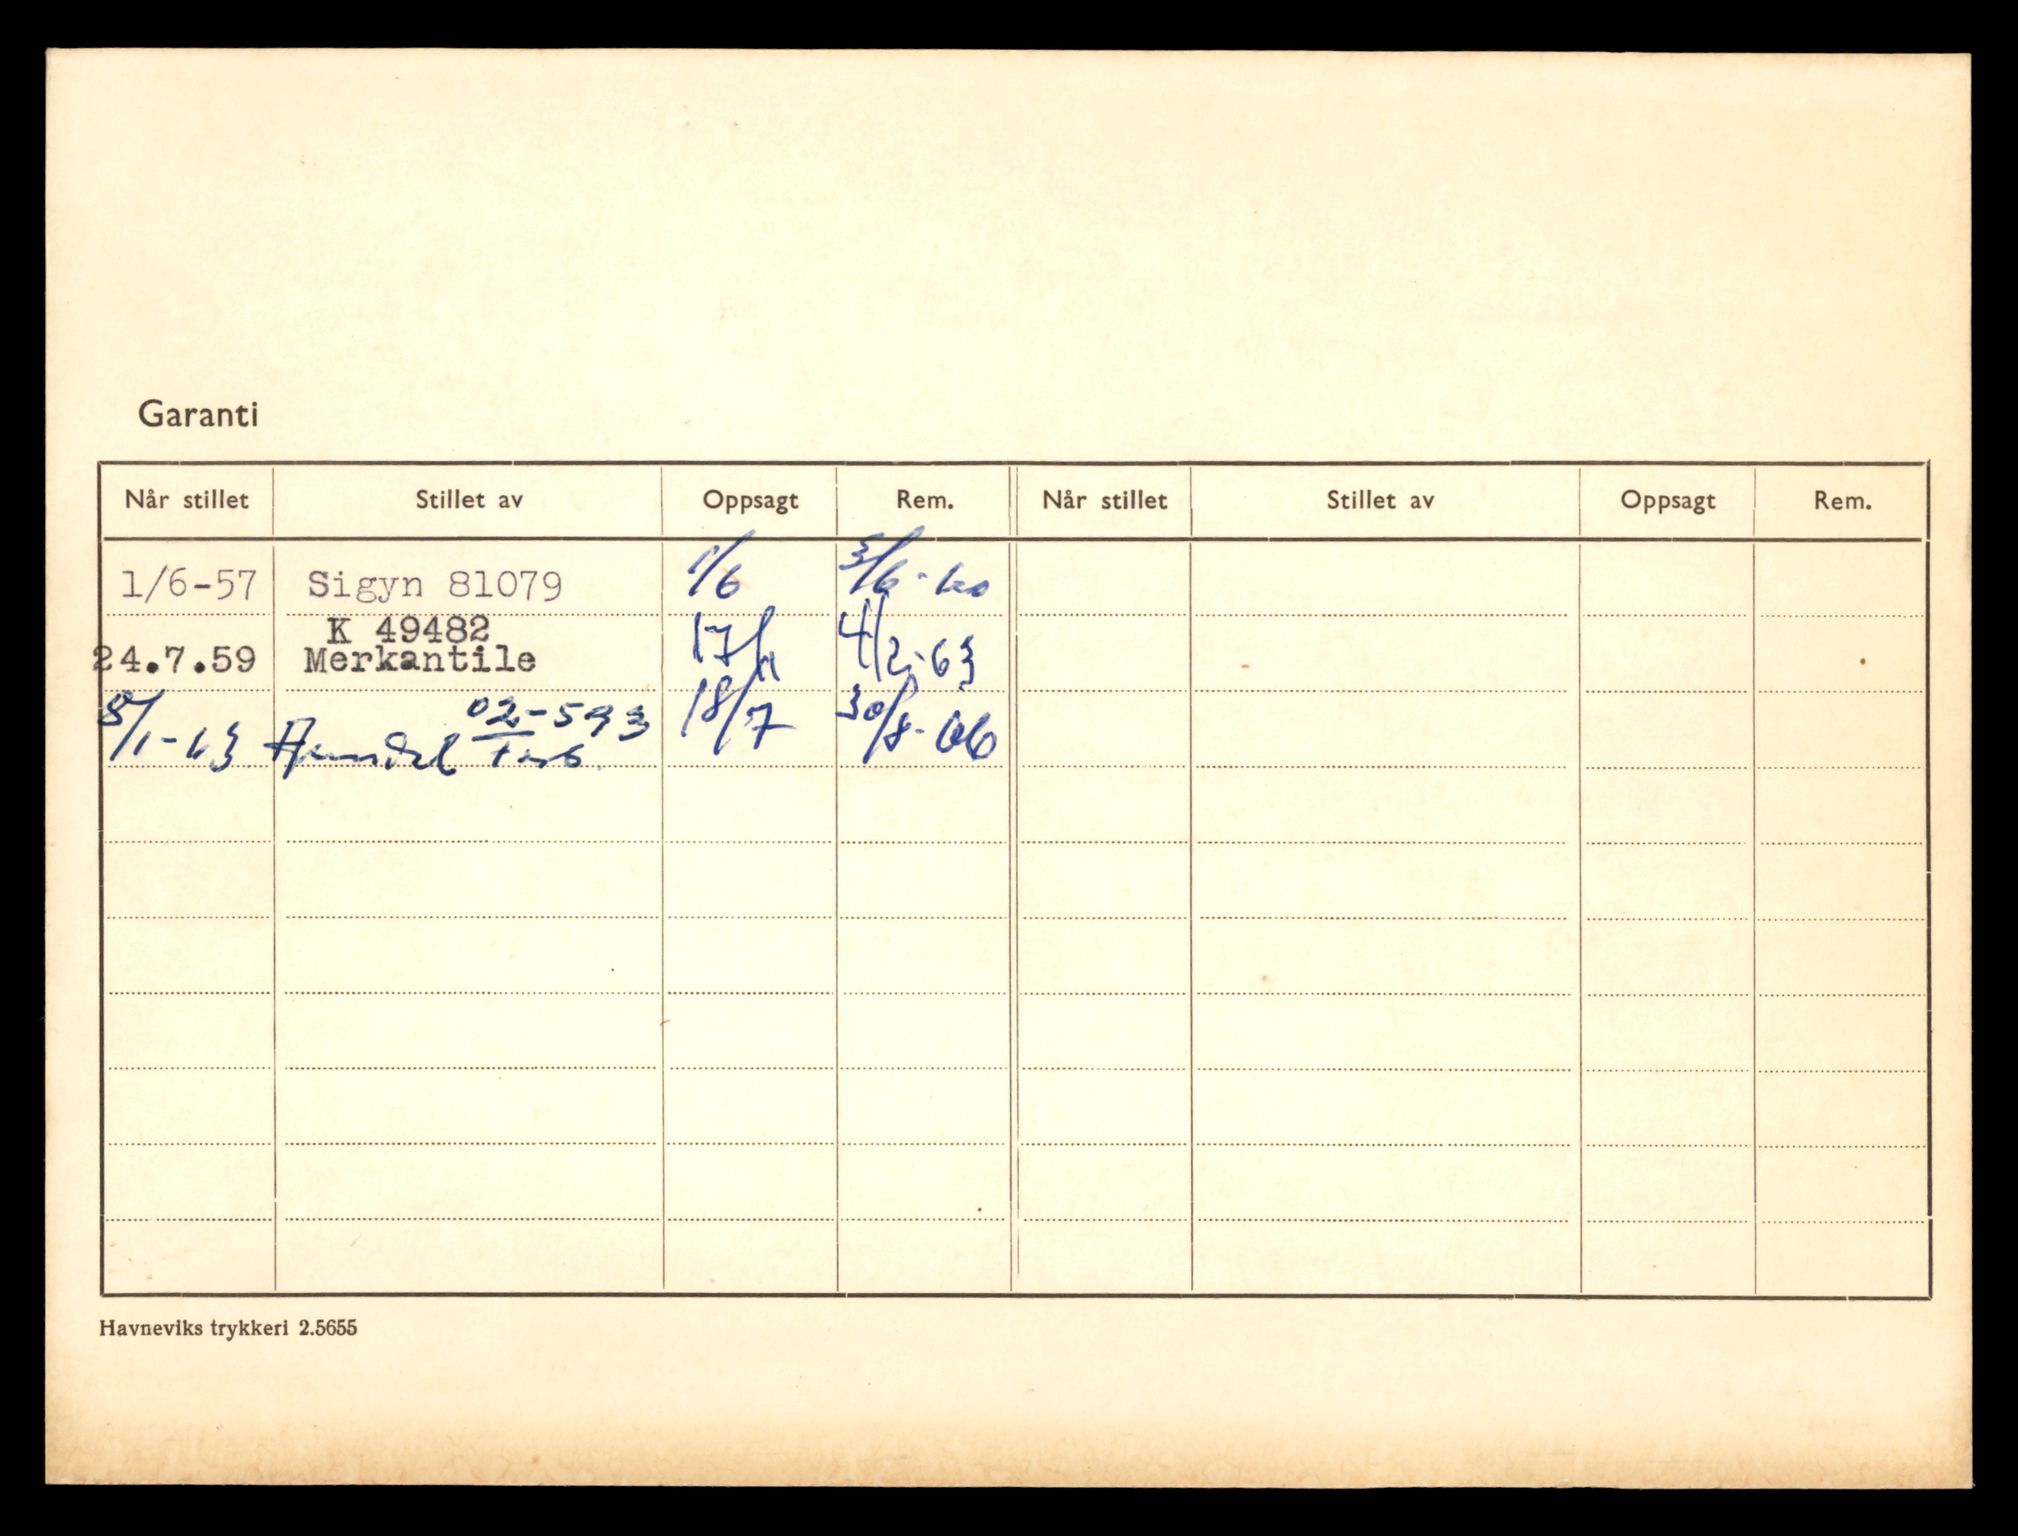 Garanti
Når stillet Stillet av Oppsagt Rem. Når stillet Stillet av Oppsagt Rem.
1/6-57 Sigyn 81079 1/6 3/6-60
K 49482
24.7.59 Merkantile 17/1 4/2-63
02-593
8/1-63 Arendal 18/7 30/8-66
Havneviks trykkeri 2.5655